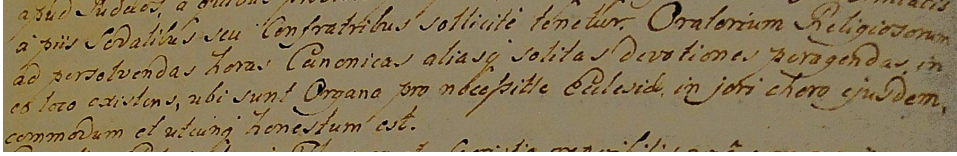 apud Judæos, a quibus
à piis Sodalibus seu Confratribus sollicitè tenetur. Oratorium Religiosorum
ad persolvendas horas Canonicas aliasq solitas devotiones peragendas, in
eo loco existens, ubi sunt Organa pro necessitte Ecclesiæ, in jori choro ejusdem,
commodum et utcunq honestum est.